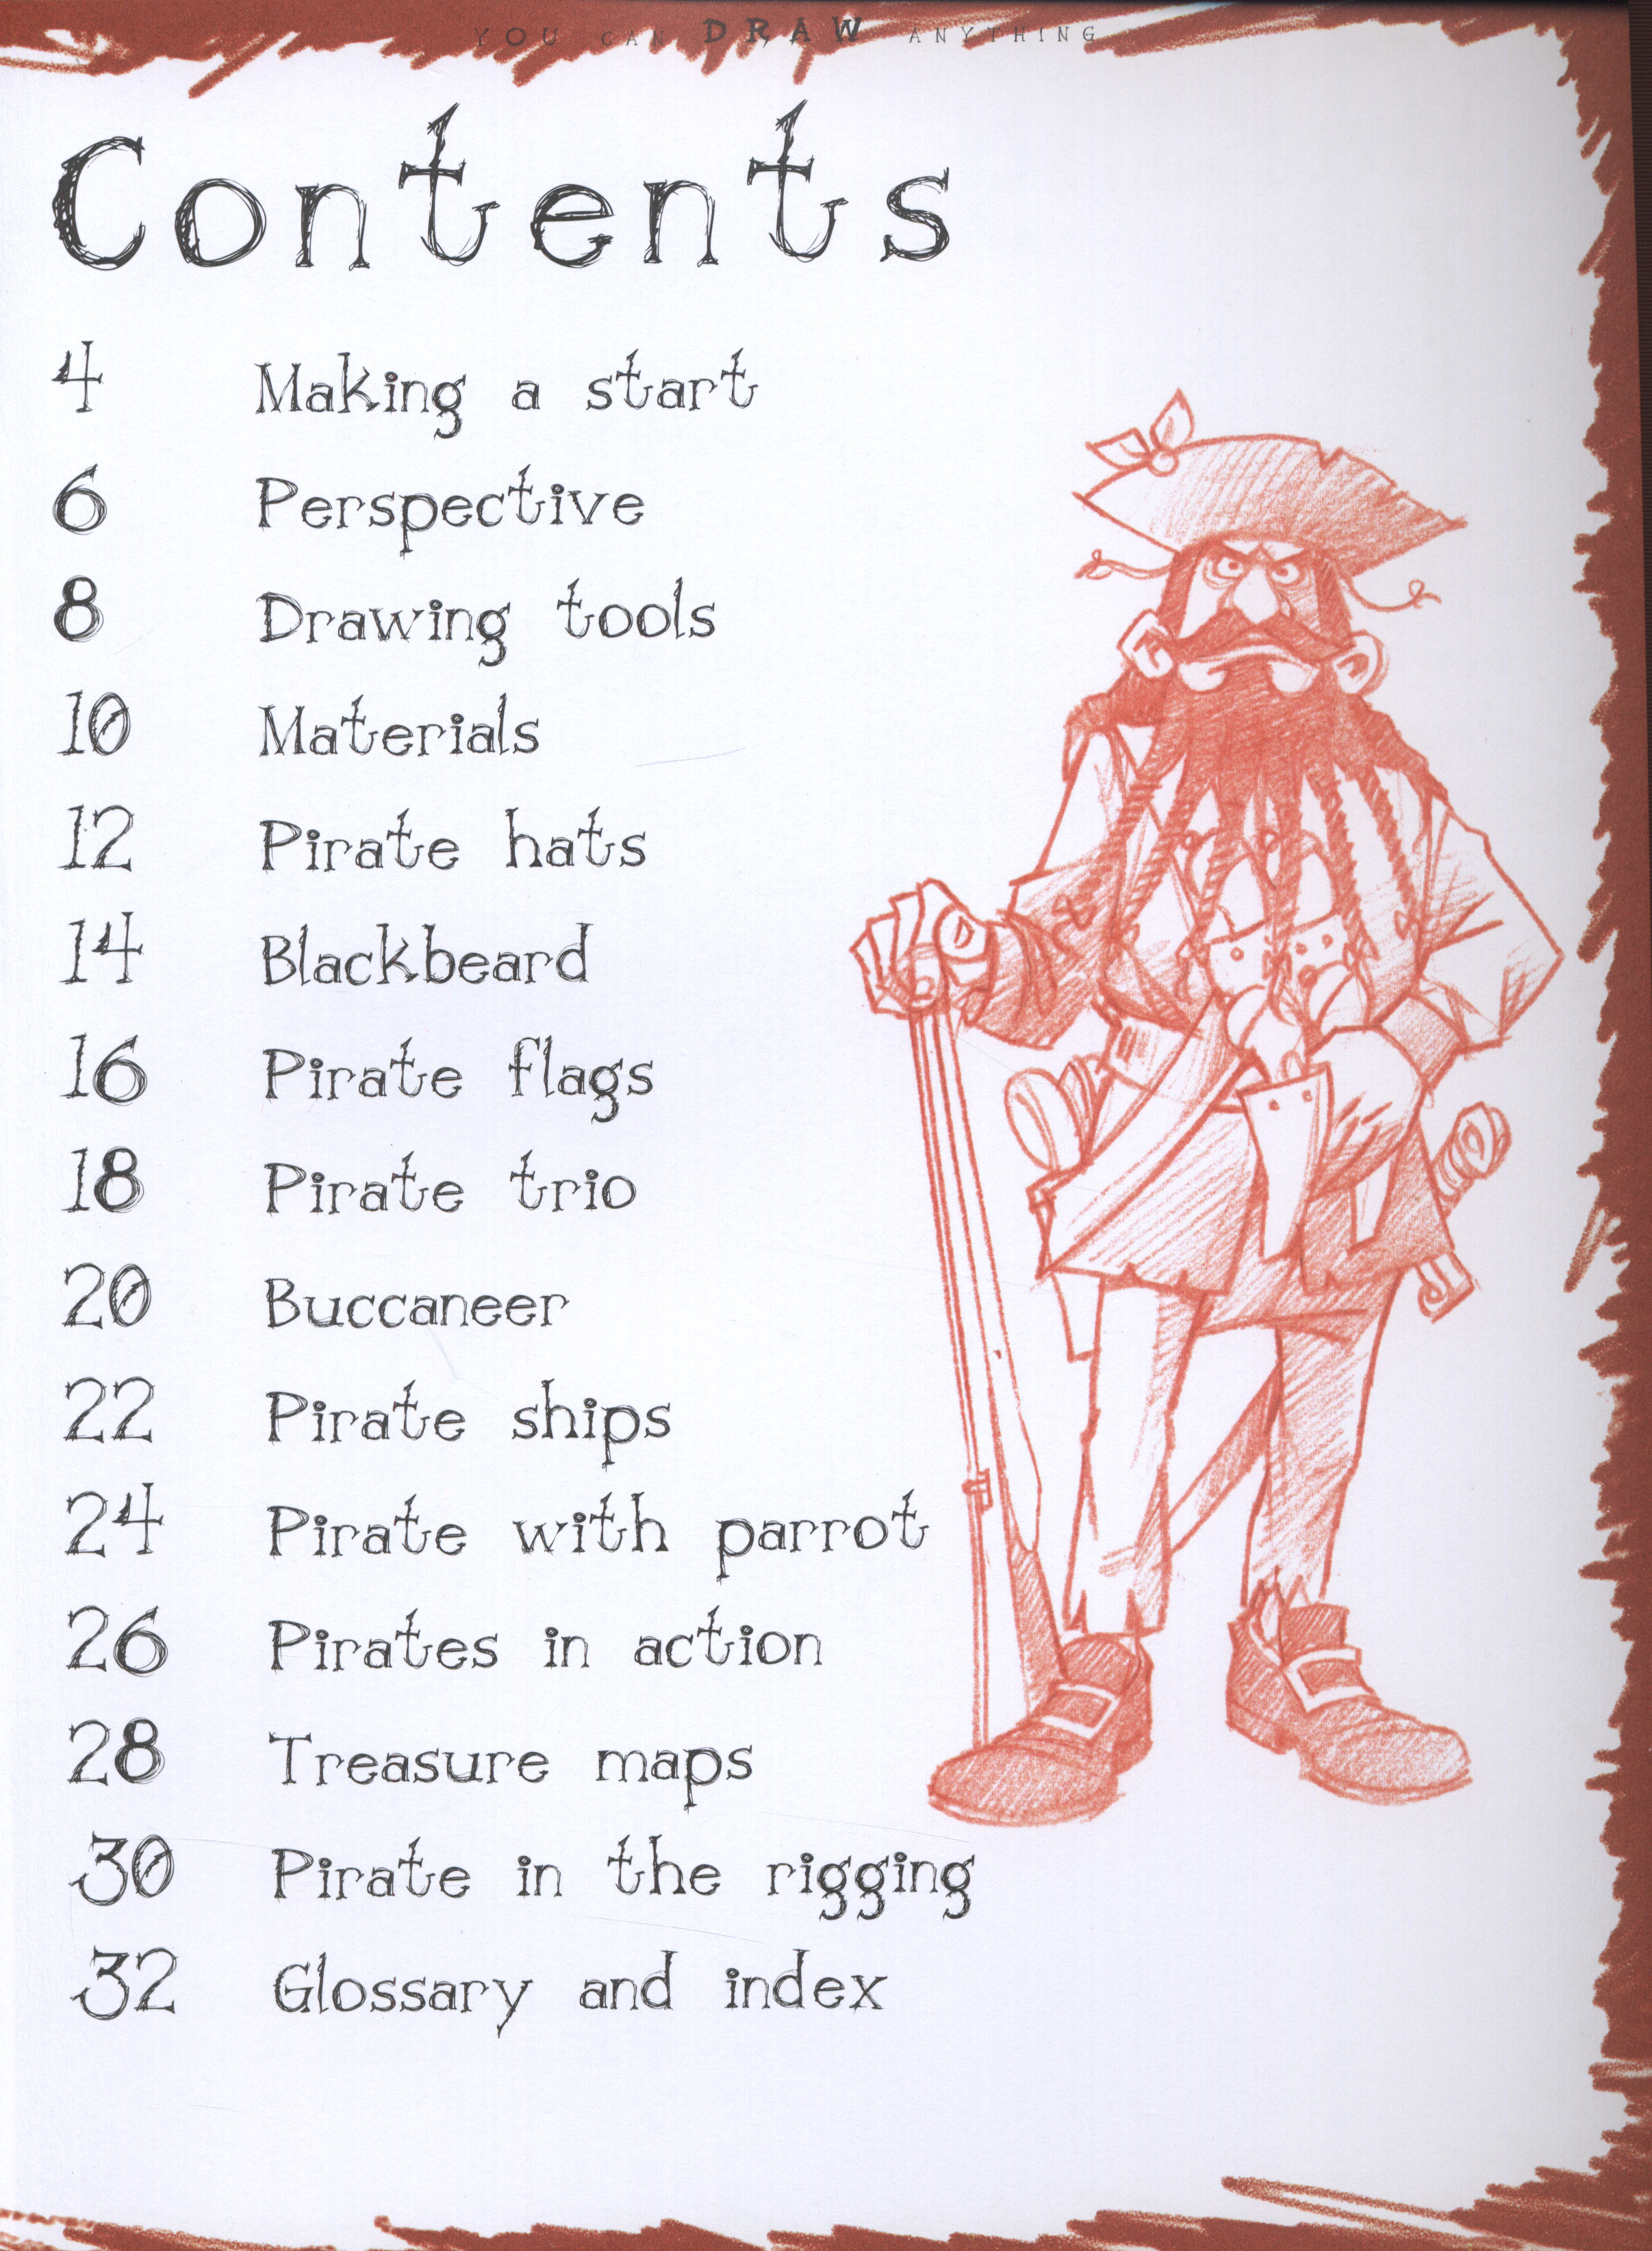 YOU CAN DRAW ANYTHING
Contents
4 Making a start
6 Perspective
8 Drawing tools
10 Materials
12 Pirate hats
14 Blackbeard
16 Pirate flags
18 Pirate trio
20 Buccaneer
22 Pirate ships
24 Pirate with parrot
26 Pirates in action
28 Treasure maps
30 Pirate in the rigging
32 Glossary and index